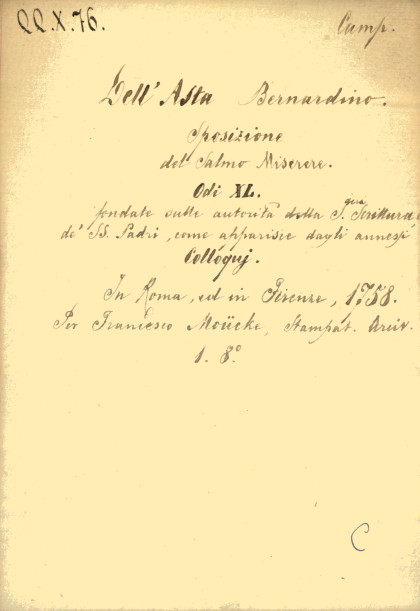 QQ.X.76.
Camp.
Dell' Asta Bernardino.
Sposizione
del Salmo Miserere.
Odi XL.
fondate sulle autorità della S. gra Scrittura e
de' SS. Padri, come apparisce dagli annessi
Colloquj.
In Roma, ed in Firenze, 1758.
Per Francesco Moücke, Stampat. Arciv.
1. 8.º
C